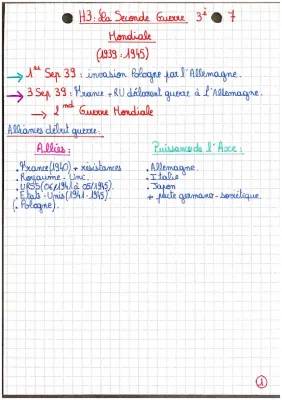 H3: La Seconde Guerre 3è 7
Mondiale
(1939-1945)
→ 1er Sep 39 : invasion Pologne par l'Allemagne.
→ 3 Sep 39 : France + RU déclarent guerre à l'Allemagne.
→ 2nd Guerre Mondiale
Alliances début guerre.
Alliés :
. France (1940) + résistances
. Royaume-Uni.
. URSS (06/1941 à 05/1945).
. Etats-Unis (1941-1945).
(. Pologne).
Puissances de l'Axe :
. Allemagne.
. Italie
. Japon
+ pacte germano-soviétique.
1